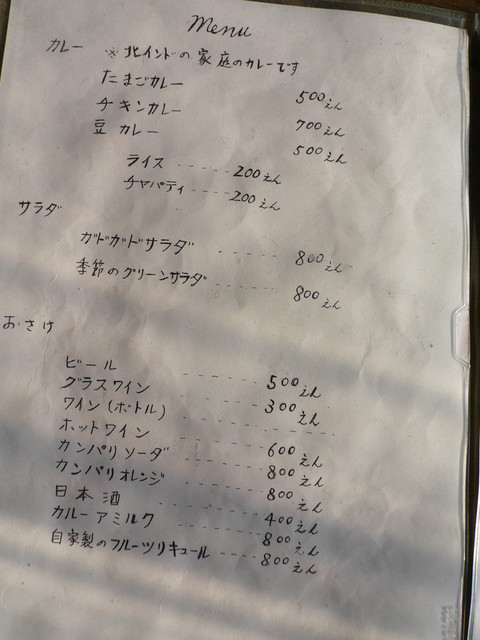 Menu
カレー ※北インドの家庭のカレーです
たまごカレー 500えん
チキンカレー 700えん
豆カレー 500えん
ライス ---- 200えん
チャパティ ---- 200えん
サラダ
ガドガドサラダ ---- 800えん
季節のグリーンサラダ ---- 800えん
おさけ
ビール ---- 500えん
グラスワイン ---- 300えん
ワイン(ボトル) ----
ホットワイン ---- 600えん
カンパリソーダ ---- 800えん
カンパリオレンジ ---- 800えん
日本酒 ---- 400えん
カルーアミルク ---- 800えん
自家製のフルーツリキュール ---- 800えん